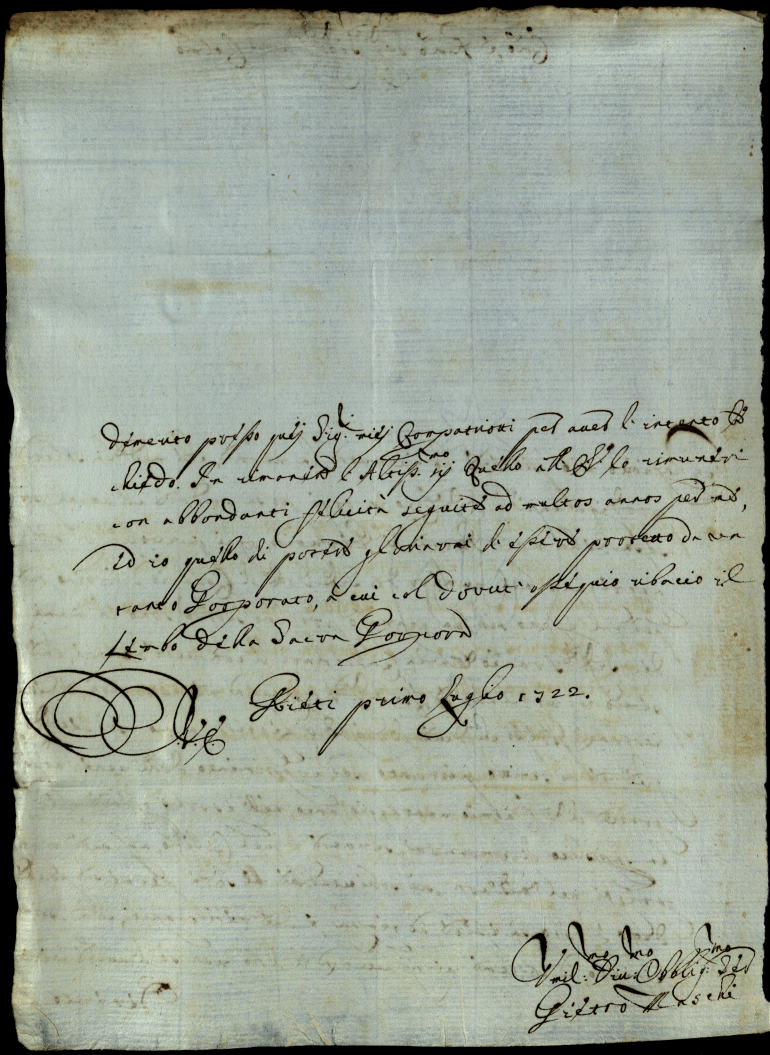 dimento presso questi Sig.ri miei Compatrioti per aver l'intento che
chiedo. In rimanere l'Altiss.mo quello che lo rimuneri
con abbondanti felicità seguite ad multos annos per me,
ed io quello di poter gloriarmi di essere protetto da un
tanto Porporato, a cui col dovuto ossequio ribacio il
lembo della Sacra Porpora
V. E. Rieti primo luglio 1722.
Umil:mo Div:mo Oblig:mo Ser
Pietro Maschi